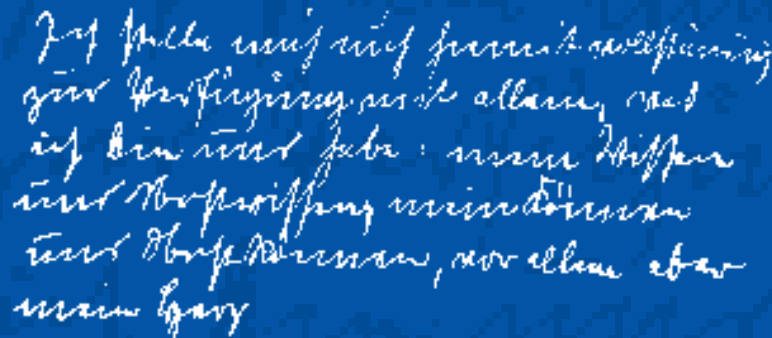 Ich stelle mich auch hiermit vollständig
zur Verfügung mit allem, was
ich bin und habe: mein Wissen
und Nochwissen, mein Können
und Noch Können, vor allem aber
mein Herz